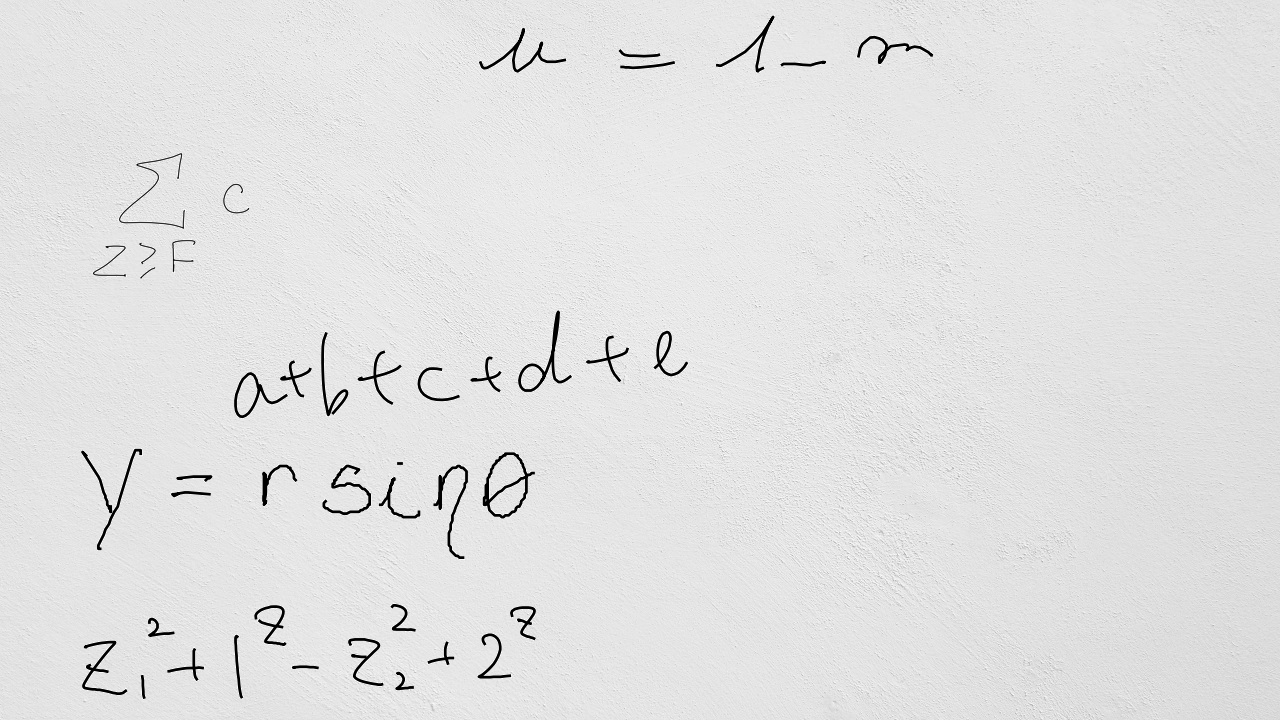 u = 1 - n
∑_{z ≥ F} c
a + b + c + d + e
y = r sin θ
z_1^2 + 1^z - z_2^2 + 2^z